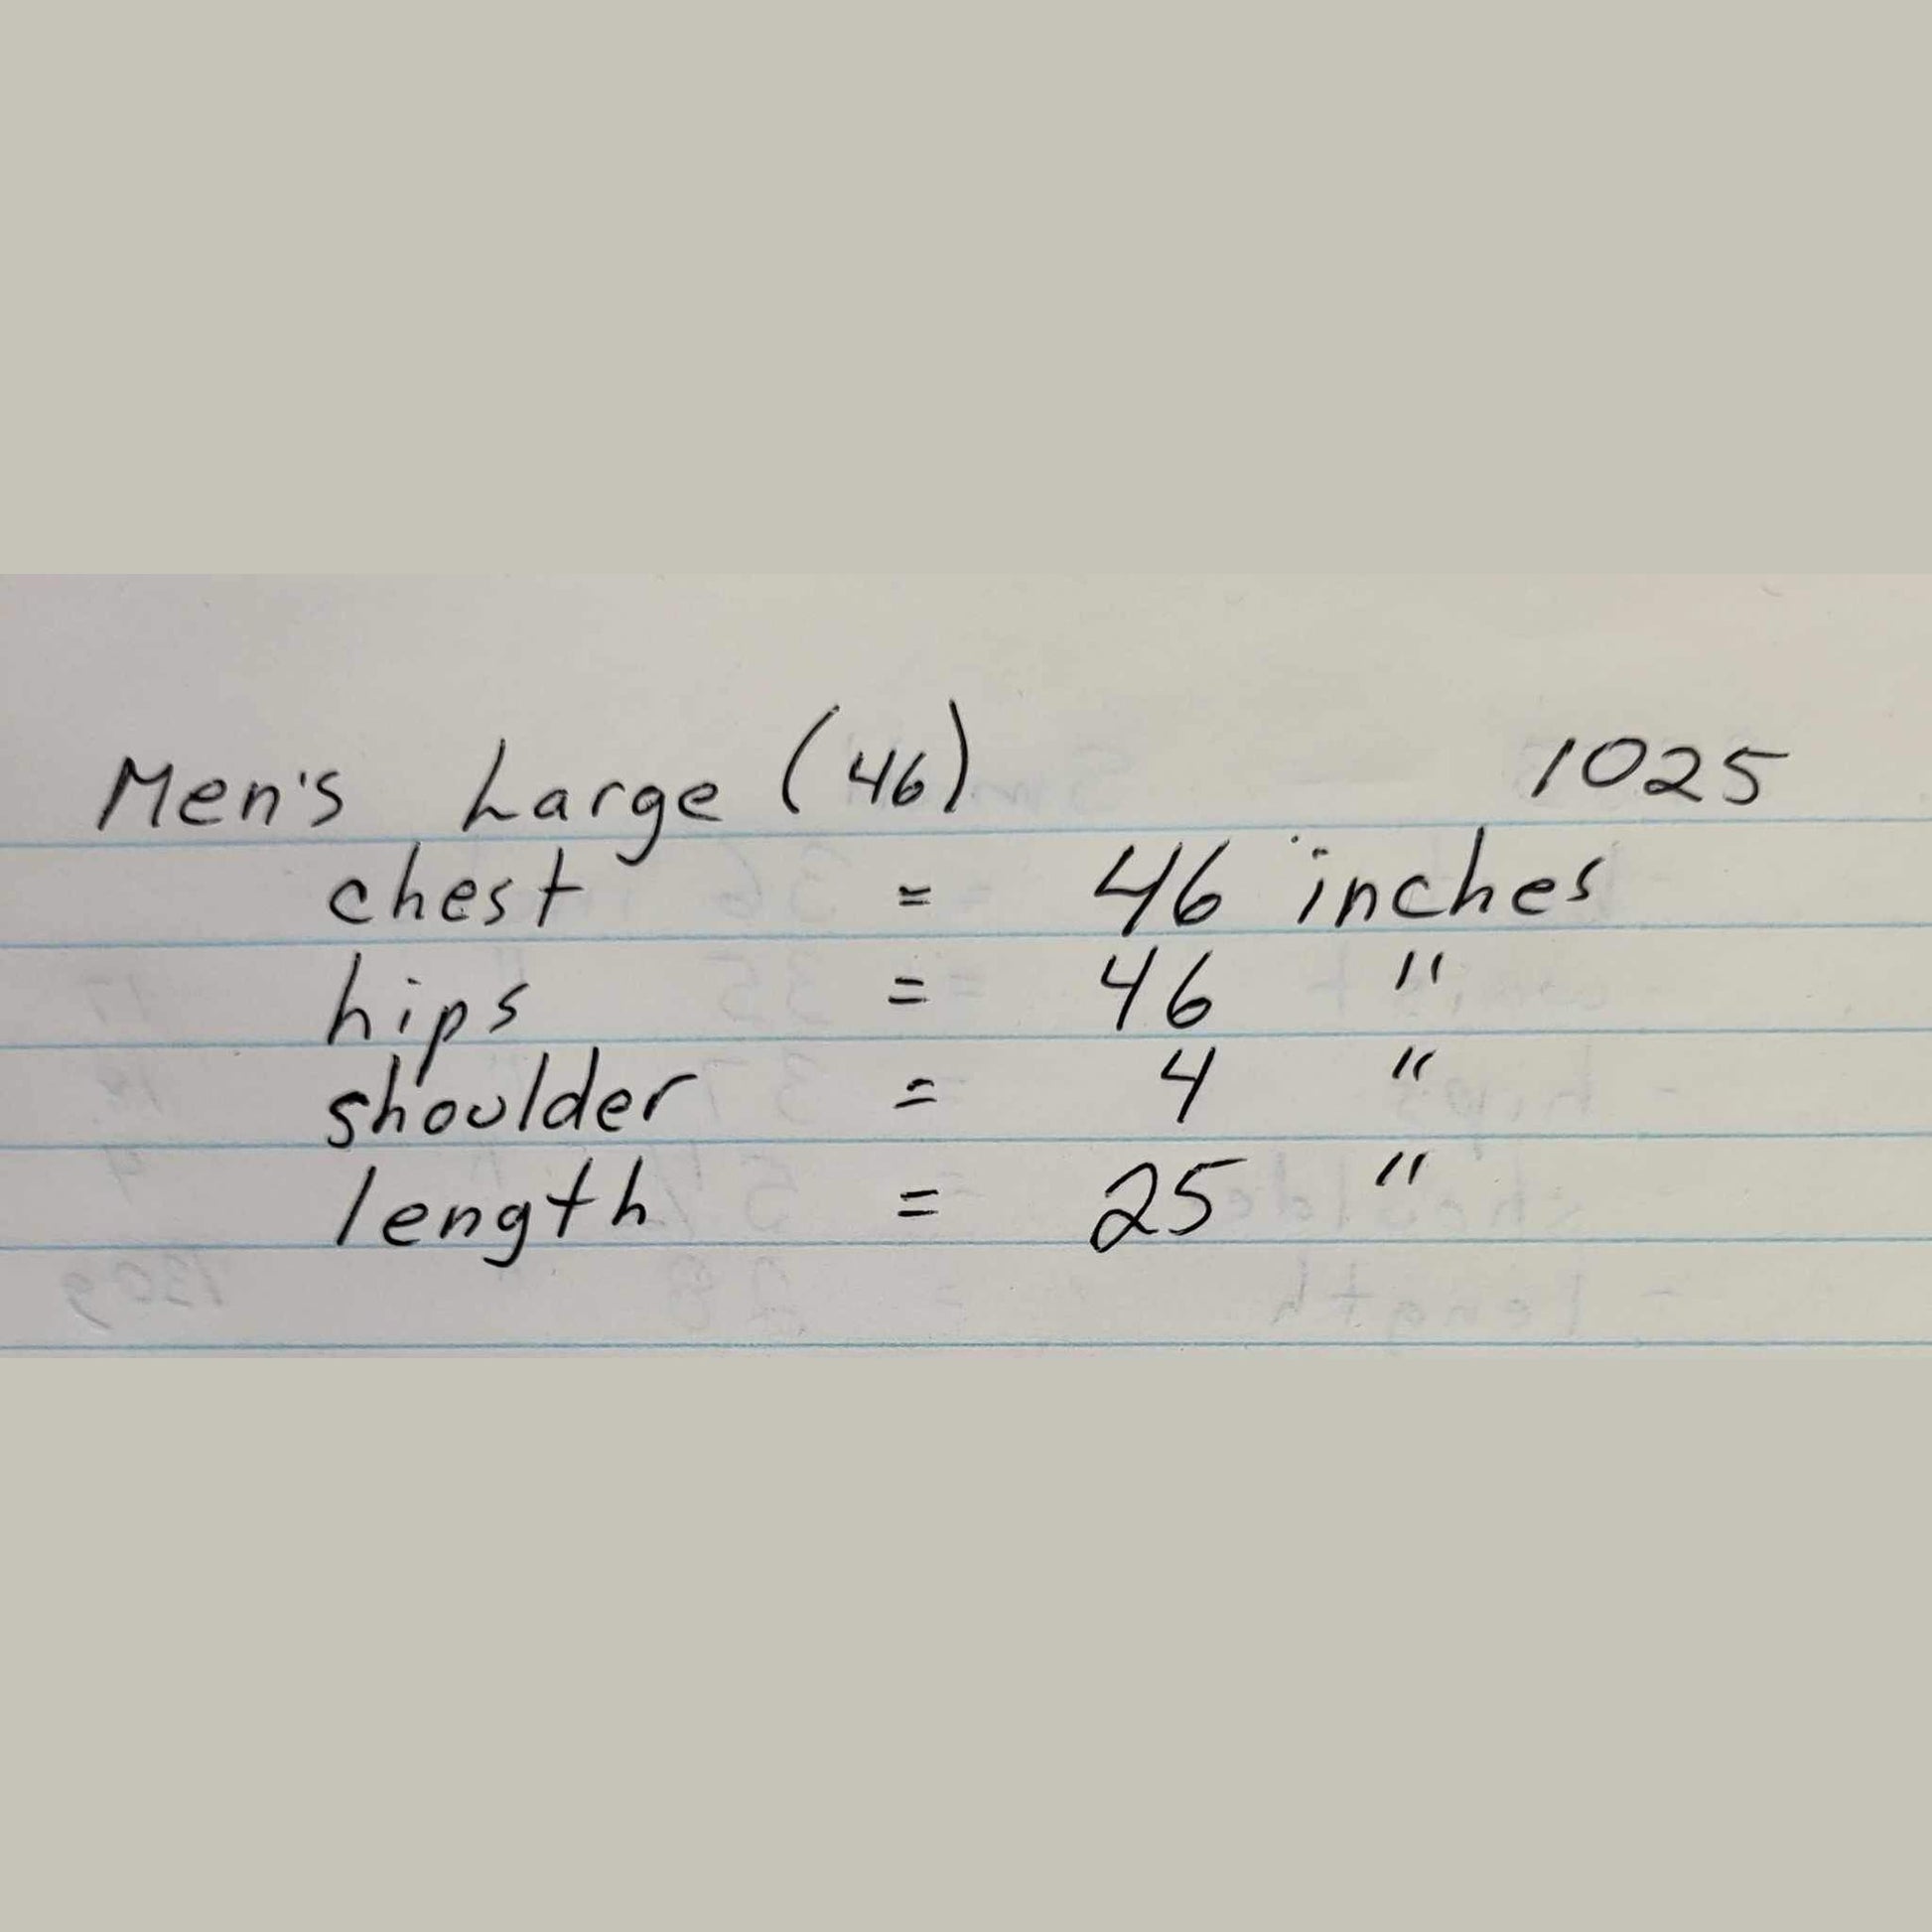 Men's Large (46) 1025
chest = 46 inches
hips = 46 "
shoulder = 4 "
length = 25 "